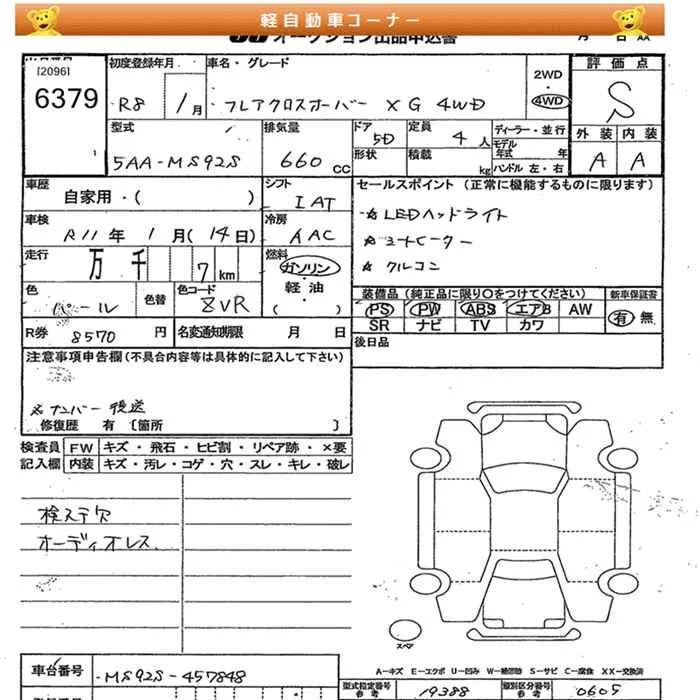 軽自動車コーナー
オークション出品申込書
月 日 AA
[2096]
6379
初度登録年月
R8 1月
車名・グレード
フレアクロスオーバー XG 4WD
2WD
・
4WD
評価点
S
外装 内装
A A
型式
5AA-MS92S
排気量
660 CC
ドア 5D
形状
定員 4 人
積載 kg
ディーラー・並行
モデル年式 年
ハンドル 左・右
車歴
自家用・( )
シフト
IAT
セールスポイント (正常に機能するものに限ります)
☆LEDヘッドライト
☆シートヒーター
☆クルコン
車検
R11年 1月(14日)
冷房
AAC
走行
万 千 7 km
燃料
ガソリン・
軽油
( )
色
パール
色替
色コード
ZVR
装備品(純正品に限り○をつけてください)
PS PW ABS エアB AW
SR ナビ TV カワ
新車保証書
有 無
R券 8570 円
名変通知期限 月 日
後日品
注意事項申告欄(不具合内容等は具体的に記入して下さい)
☆ナンバー後送
修復歴 有 〔箇所 〕
検査員記入欄
FW キズ・飛石・ヒビ割・リペア跡・×要
内装 キズ・汚レ・コゲ・穴・スレ・キレ・破レ
検ステ欠
オーディオレス
スペア
A-キズ E-エクボ U-凹み W-補修跡 S-サビ C-腐食 XX-交換済
車台番号 MS92S-457848
型式指定番号 参考 19388
類別区分番号 参考 0605